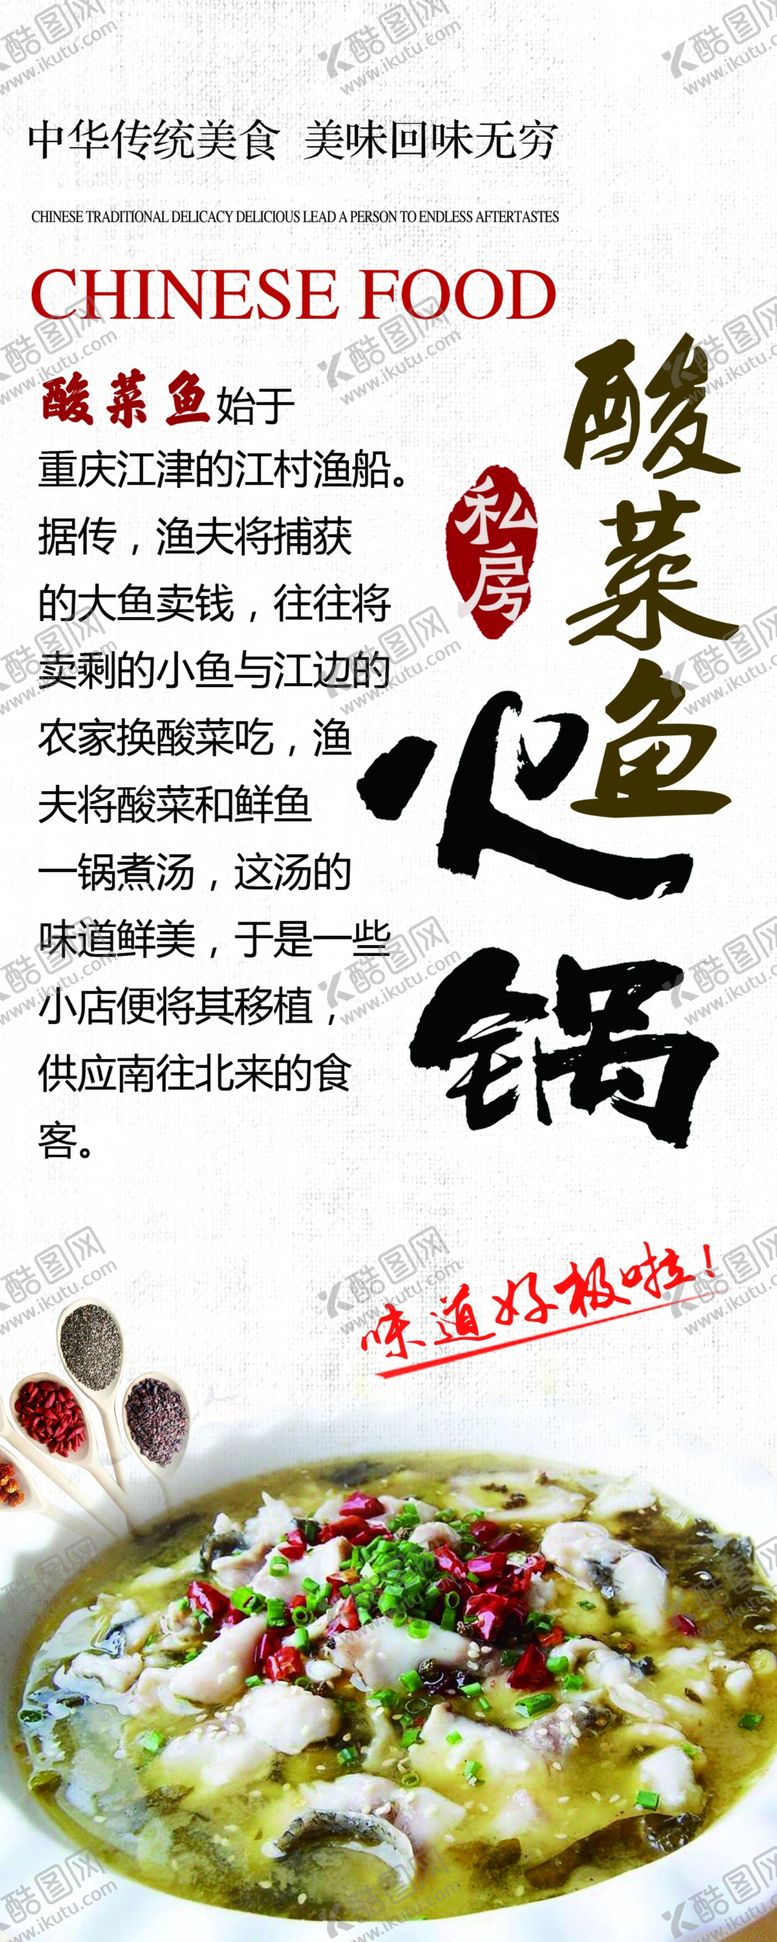 中华传统美食 美味回味无穷
CHINESE TRADITIONAL DELICACY DELICIOUS LEAD A PERSON TO ENDLESS AFTERTASTES
CHINESE FOOD
酸菜鱼始于
重庆江津的江村渔船。
据传，渔夫将捕获
的大鱼卖钱，往往将
卖剩的小鱼与江边的
农家换酸菜吃，渔
夫将酸菜和鲜鱼
一锅煮汤，这汤的
味道鲜美，于是一些
小店便将其移植，
供应南往北来的食
客。
酸菜鱼
私房
火锅
味道好极啦！
酷图网
www.ikutu.com